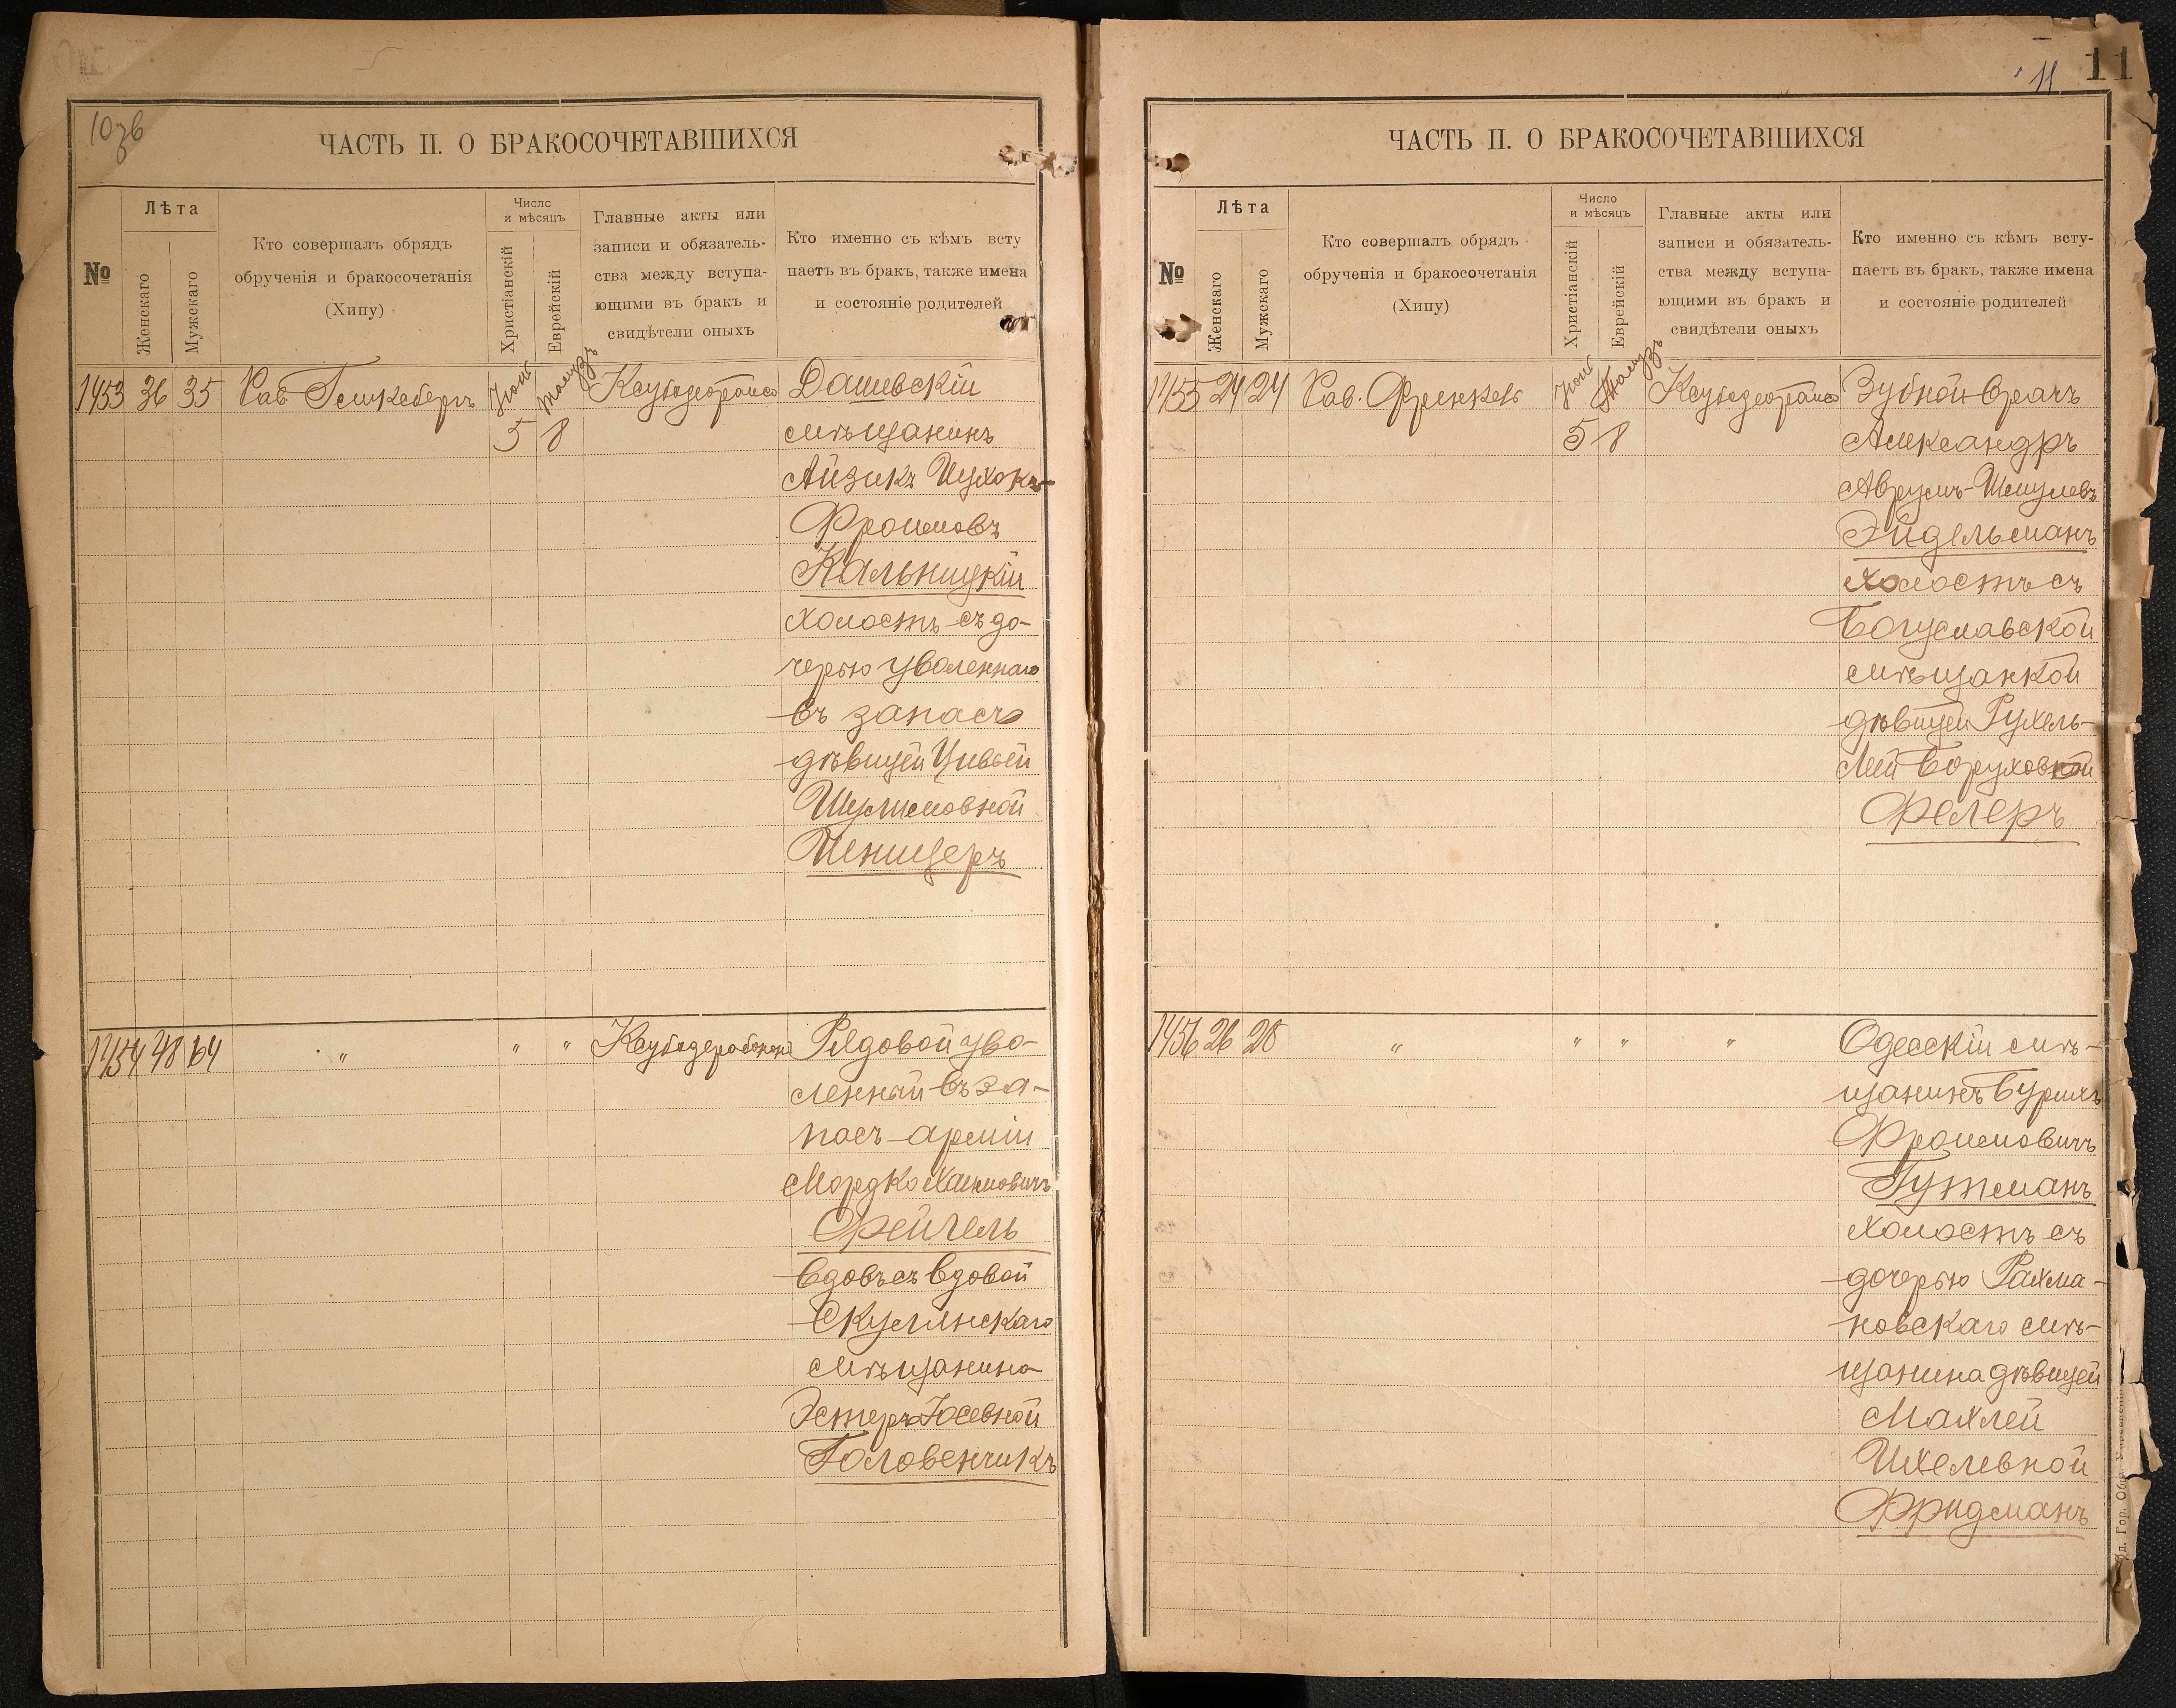 10зв
ЧАСТЬ II. О БРАКОСОЧЕТАВШИХСЯ
№
Лѣта
Женскаго
Мужскаго
Кто совершалъ обрядъ
обрученія и бракосочетанія
(Хипу)
Число
и мѣсяцъ
Христіанскій
Еврейскій
Главные акты или
записи и обязатель-
ства между вступа-
ющими въ бракъ и
свидѣтели оныхъ
Кто именно съ кѣмъ всту
паетъ въ бракъ, также имена
и состояніе родителей
1453 36 35 Рав
Дашевскій
мѣщанинъ
Айзикъ
Фроимовъ
Кальницкій
холостъ съ до-
черью уволеннаго
въ запасъ
дѣвицей Цивьей
Шулимовной
1454 48 64 " " " Рядовой уво-
ленный въ за-
пасъ арміи
Мордко Хаимовичъ
Фейгель
вдовъ съ вдовой
Скулянскаго
мѣщанина
Эстеръ Іосевной
Головенчикъ
11
11
ЧАСТЬ II. О БРАКОСОЧЕТАВШИХСЯ
№
Лѣта
Женскаго
Мужскаго
Кто совершалъ обрядъ
обрученія и бракосочетанія
(Хипу)
Число
и мѣсяцъ
Христіанскій
Еврейскій
Главные акты или
записи и обязатель-
ства между вступа-
ющими въ бракъ и
свидѣтели оныхъ
Кто именно съ кѣмъ всту-
паетъ въ бракъ, также имена
и состояніе родителей
1455 24 24 Рав. Френкель Зубной врачъ
5 8 Александръ
Аврумъ-Шмулевъ
Эйдельманъ
холостъ съ
Богуславской
мѣщанкой
дѣвицей Рухель-
Леей Боруховной
Фелеръ
1456 26 28 " " " " Одесскій мѣ-
щанинъ Бурихъ
Фроимовичъ
Гутманъ
холостъ съ
дочерью Рахма-
новскаго мѣ-
щанина дѣвицей
Махлей
Ихелевной
Фридманъ